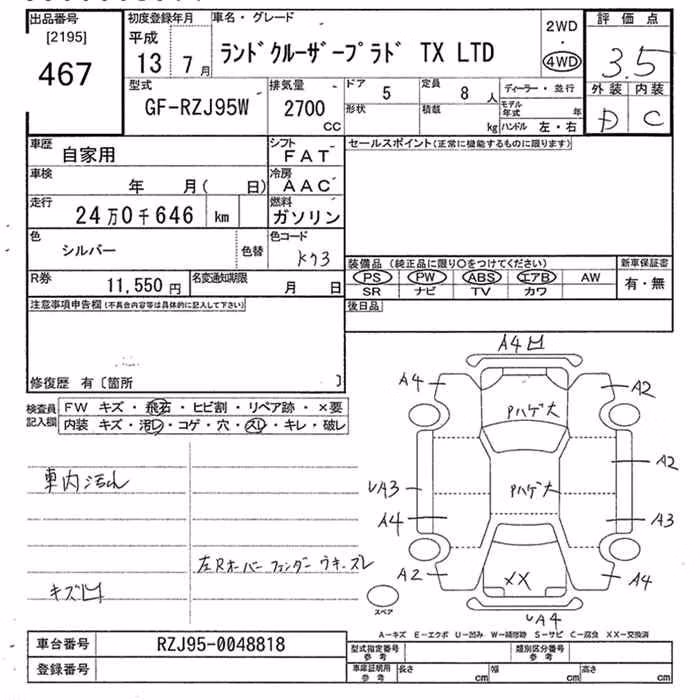 出品番号
[2195]
467
初度登録年月
平成
13 7月
車名・グレード
ランドクルーザープラド TX LTD
2WD
・
4WD
評価点
3.5
外装 内装
D C
型式
GF-RZJ95W
排気量
2700
CC
ドア
5
定員
8人
ディーラー・並行
形状
積載
kg
モデル年式
年
ハンドル 左・右
車歴
自家用
シフト
FAT
セールスポイント(正常に機能するものに限ります)
車検
年 月( 日)
冷房
AAC
走行
24万0千646 km
燃料
ガソリン
色
シルバー
色替
色コード
装備品 (純正品に限り○をつけてください)
新車保証書
PS PW ABS エアB AW
有・無
SR ナビ TV カワ
R券
11,550円
名変通知期限
月 日
後日品
注意事項申告欄(不具合内容等は具体的に記入して下さい)
修復歴 有〔箇所 〕
検査員
記入欄
FW キズ・飛石・ヒビ割・リペア跡・×要
内装 キズ・汚レ・コゲ・穴・スレ・キレ・破レ
A4凹
A4
A2
Pハゲ大
A2
Pハゲ大
UA3
A4
A3
A2
XX
A4
UA4
車内汚れ
左Rオーバーフェンダーウキ・ズレ
キズ凹
スペア
A-キズ E-エクボ U-凹み W-補修跡 S-サビ C-腐食 XX-交換済
車台番号
RZJ95-0048818
登録番号
型式指定番号
参考
類別区分番号
参考
車庫証明用
参考
長さ cm
幅 cm
高さ cm